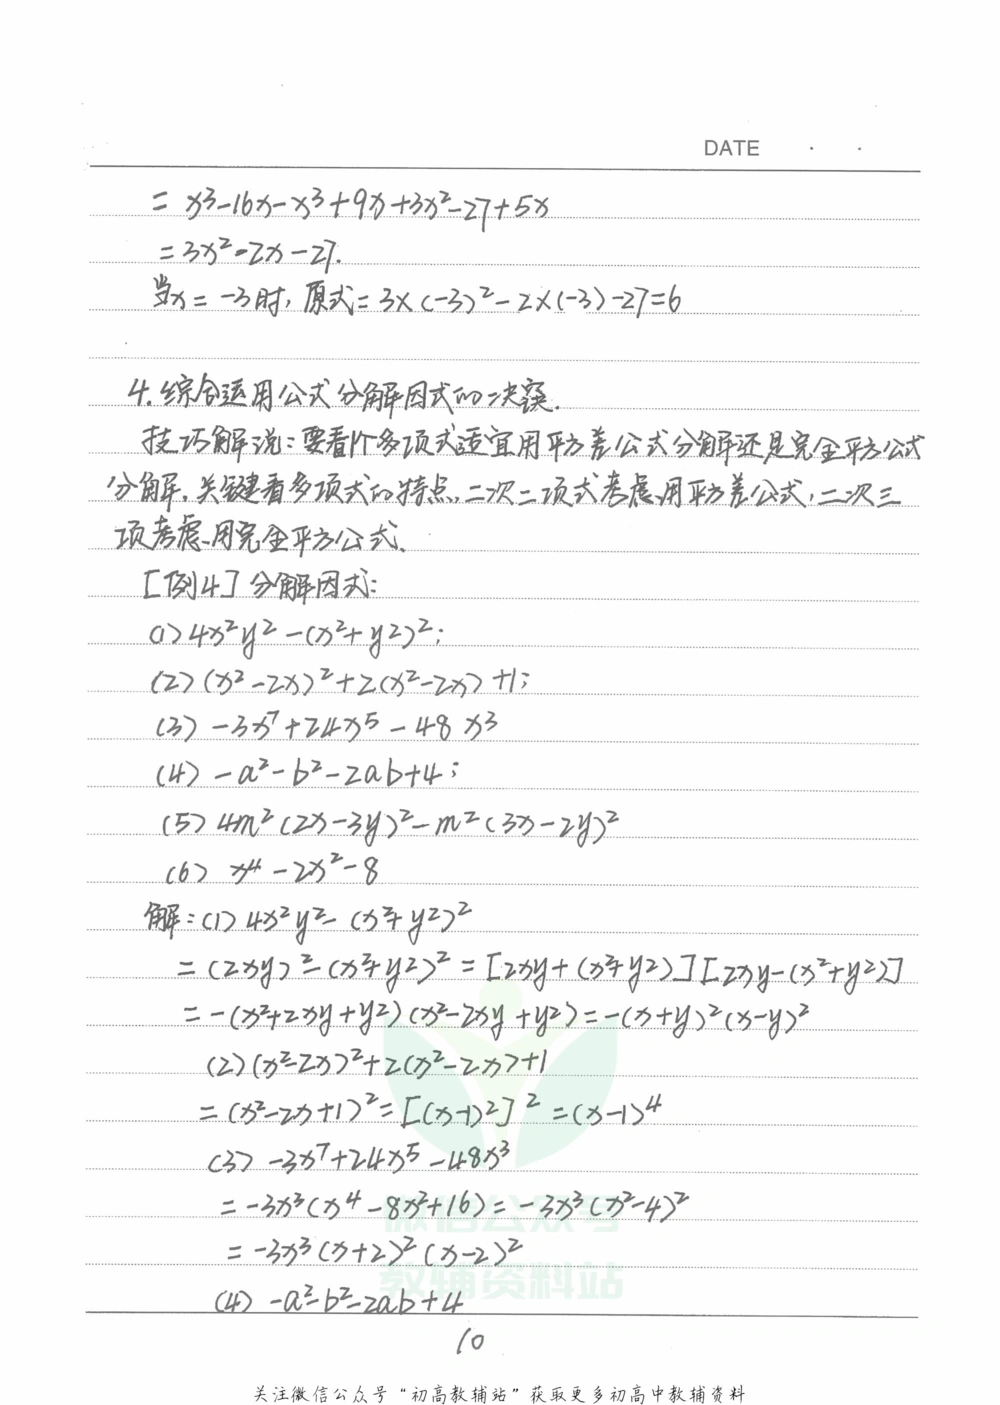 DATE · ·
= x³-16x-x³+9x+3x²-27+5x
=3x²-2x-27.
当x=-3时,原式=3×(-3)²-2×(-3)-27=6
4.综合运用公式分解因式的诀窍.
技巧解说:要看1个多项式适宜用平方差公式分解还是完全平方公式
分解,关键看多项式的特点,二次二项式考虑用平方差公式,二次三
项考虑用完全平方公式.
[例4]分解因式:
(1)4x²y²-(x²+y²)²;
(2)(x²-2x)²+2(x²-2x)+1;
(3)-3x⁷+24x⁵-48x³
(4)-a²-b²-2ab+4;
(5)4m²(2x-3y)²-m²(3x-2y)²
(6) x⁴-2x²-8
解:(1)4x²y²-(x²+y²)²
=(2xy)²-(x²+y²)²=[2xy+(x²+y²)][2xy-(x²+y²)]
=-(x²+2xy+y²)(x²-2xy+y²)=-(x+y)²(x-y)²
(2)(x²-2x)²+2(x²-2x)+1
=(x²-2x+1)²=[(x-1)²]²=(x-1)⁴
(3)-3x⁷+24x⁵-48x³
=-3x³(x⁴-8x²+16)=-3x³(x²-4)²
=-3x³(x+2)²(x-2)²
(4)-a²-b²-2ab+4
微信公众号
教辅资料站
10
关注微信公众号“初高教辅站”获取更多初高中教辅资料